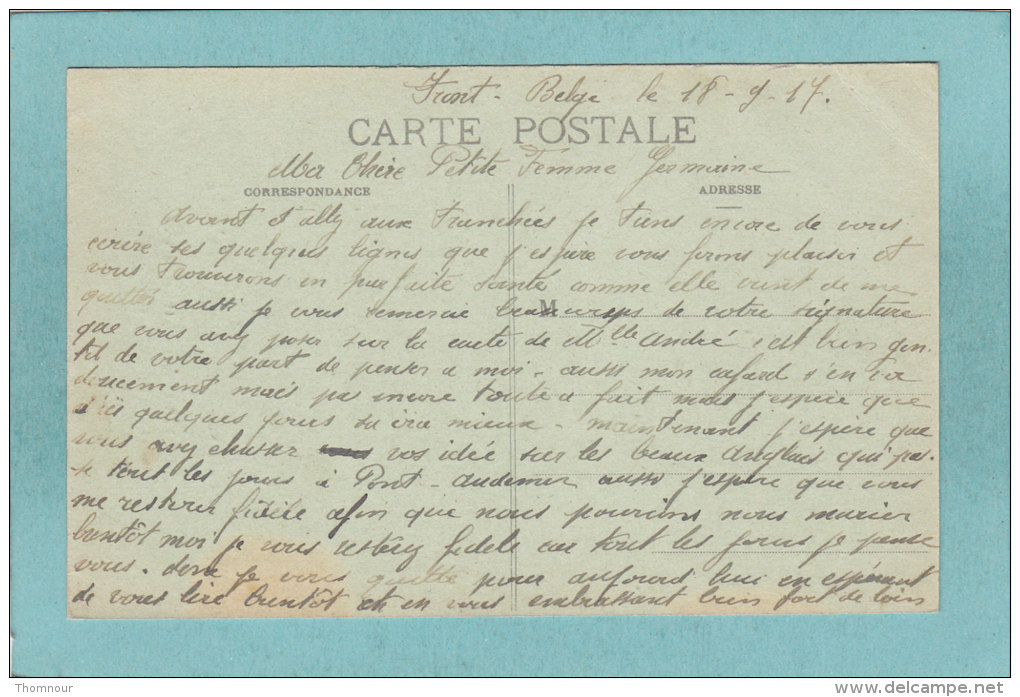 Front - Belge le 18-9-17.
CARTE POSTALE
Ma Chère Petite Fémme Germaine
CORRESPONDANCE
ADRESSE
avant d'ally aux Tranchées je tiens encore de vous
ecrire ses quelques lignes que j'espère vous ferons plaisir et
vous trouverons en parfaite santé comme elle vient de me
quitter aussi je vous remercie beaucoups de votre signature
M
que vous avez poser sur la carte de Mlle André c'est bien gen-
til de votre part de penser a moi - aussi mon cafard s'en va
doucement mais pas encore toute a fait mais j'espère que
d'ici quelques jours sa ira mieux - maintenant j'espère que
vous avez chasser vos idée sur les beaux Anglais qui pas-
se tout les jours à Pont-Audemer aussi j'espère que vous
me resterer fidèle afin que nous pourions nous marier
bientôt moi je vous resterez fidele car tout les jours je pense
vous. donc je vous quitte pour aujourd hui en espérant
de vous lire bientôt et en vous embrassant bien fort de loin
Thomnour
www.delcampe.net